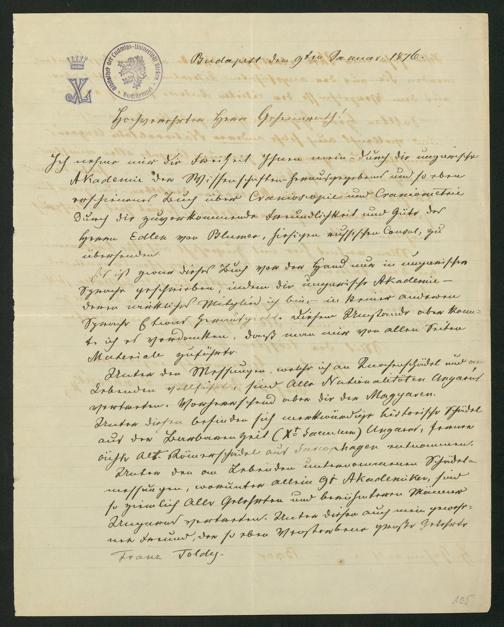 Budapest den 9ten Januar 1876.
Hochverehrter Herr Geheimrath!
Ich nehme mir die Freiheit Ihnen mein durch die ungarische
Akademie der Wissenschaften herausgegebenes und so eben
erschienenes Buch über Cranioscopie und Craniometrie
durch die zuvorkommende Freundlichkeit und Güte des
Herrn Edlen von, hiesigen russischen Consul, zu
übersenden.
Es ist zwar dieses Buch vor der Hand nur in ungarischer
Sprache geschrieben, indem die ungarische Akademie –
deren wirkliches Mitglied ich bin – in keiner anderen
Sprache Etwas. Diesem Umstande aber
ich es verdanken, daß man mir von allen Seiten
Materiale zuführte
Unter den Messungen, welche ich an Rassenschädel und an
Lebenden vollführt, sind alle Nationalitäten Ungarns
vertreten. Vorherrschend aber die der Magyaren.
Unter diesen befinden sich merkwürdige historische Schädel
aus der Ungarns, ferner
ächte alte Römerschädel aus Sarcophagen entnommen.
Unter den an Lebenden unternommenen Schädel-
messungen, worunter allein Akademiker, sind
so ziemlich alle Gelehrten und berühmteren Männer
Ungarns vertreten. Unter diesen auch mein
Freund, der so eben verstorbene große Gelehrte
Franz Toldy.
195